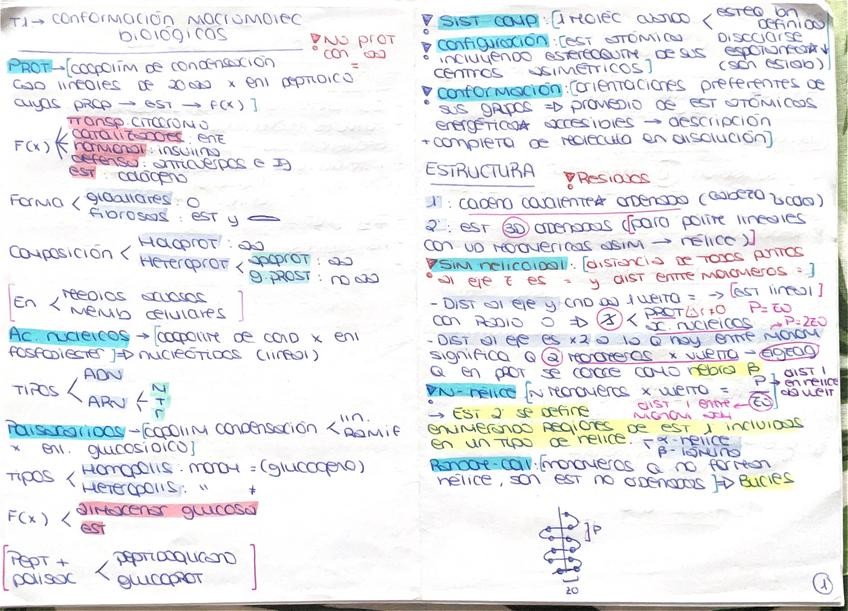 T.1 → CONFORMACIÓN MACROMOLEC
BIOLÓGICAS
! No PROT
CON ∞
=
PROT → [COOPOLIM DE CONDENSACIÓN
CASO LINEALES DE 20 aa x ENL PEPTIDICO
CUYAS PROP → EST → F(x)]
F(x) <
TRANSP: CITOCROMO
CATALIZADORES: ENZ
HORMONAL: INSULINA
DEFENSA: ANTICUERPOS E Ig
EST: COLÁGENO
FORMA < GLOBULARES: O
FIBROSOS: EST Y
COMPOSICIÓN < HOLOPROT: aa
HETEROPROT < APOPROT: aa
G. PROST: NO aa
[EN < MEDIOS ACUOSOS
MEMB CELULARES]
AC. NUCLEICOS → [COOPOLIM DE COND x ENL
FOSFODIESTER] ⇒ NUCLEÓTIDOS (LINEAL)
TIPOS < ADN
ARN < N
T
r
POLISACARIDOS → [COPOLIM CONDENSACIÓN < LIN.
RAMIF
x ENL. GLUCOSÍDICO]
TIPOS < HOMOPOLIS: MONOM = (GLUCOGENO)
HETEROPOLIS: " ≠
F(x) < ALMACENAR GLUCOSA
EST
[PEPT +
POLISAC < PEPTIDOGLUCANO
GLUCOPROT]
SIST COMP: [1 MOLEC CUANDO < ESTEQ BN
DEFINIDA
DISOCIARSE
ESPONTÁNEA*
(SON ESTAB)
CONFIGURACIÓN: [EST ATÓMICA
INCLUYENDO ESTEREOQUIM DE SUS
CENTROS ASIMÉTRICOS]
CONFORMACIÓN: [ORIENTACIONES PREFERENTES DE
SUS GRUPOS ⇒ PROMEDIO DE EST ATÓMICAS
ENERGÉTICA* ACCESIBLES → DESCRIPCIÓN
+ COMPLETA DE MOLÉCULA EN DISOLUCIÓN]
ESTRUCTURA
! RESIDUOS
1ª: CADENA COVALENTE* ORDENADA (CABEZA → COLA)
2ª: EST 3D ORDENADAS [(PARA POLIM LINEALES
CON UD MONOMÉRICAS ASIM → HÉLICE)]
SIM HELICOIDAL: [DISTANCIA DE TODOS PUNTOS
AL EJE Z ES = Y DIST ENTRE MONÓMEROS =]
- DIST AL EJE Y CND aa 1 VUELTA = → [EST LINEAL]
CON RADIO 0 ⇒ < PROT
AC. NUCLEICOS
P = Z0
→ P = 2Z0
- DIST AL EJE ES x2 A LA Q HAY ENTRE MONOM
SIGNIFICA Q 2 MONÓMEROS x VUELTA →
Q EN PROT SE CONOCE COMO HEBRA β
N-HÉLICE: [N MONÓMEROS x VUELTA = P
Z0
DIST 1
→ EN HÉLICE
DA VUELT
DIST 1 ENTRE
MONOM
→ EST 2ª SE DEFINE
ENUMERANDO REGIONES DE EST 1 INCLUIDOS
EN UN TIPO DE HÉLICE. < α-HÉLICE
β-LÁMINA
RANDOM-COIL: [MONÓMEROS Q NO FORMAN
HÉLICE, SON EST NO ORDENADAS] ⇒ BUCLES
P
Z0
1